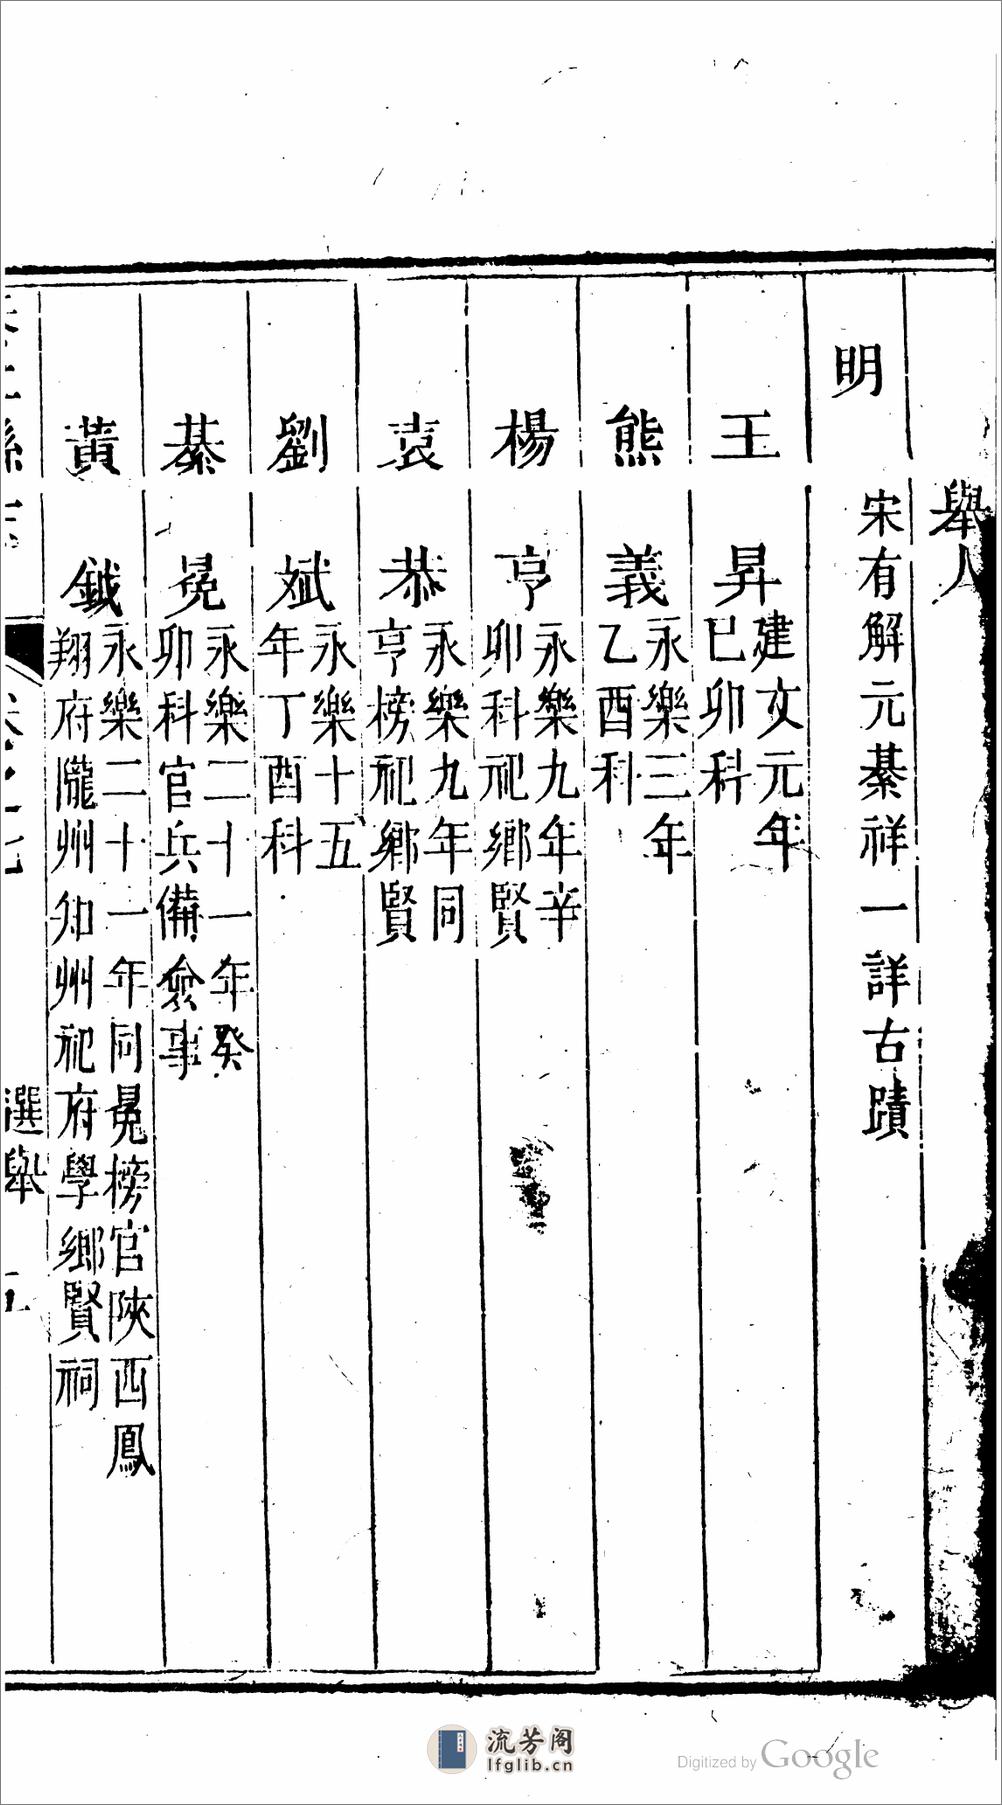 舉人
宋有解元綦祥一詳古蹟
明
王昇 建文元年己卯科
熊義 永樂三年乙酉科
楊亨 永樂九年辛卯科祀鄉賢
袁恭 永樂九年同亨榜祀鄉賢
劉斌 永樂十五年丁酉科
綦冕 永樂二十一年癸卯科官兵備僉事
黃鉞 永樂二十一年同冕榜官陝西鳳翔府隴州知州祀府學鄉賢祠
選舉 五
流芳阁
lfglib.cn
Digitized by Google